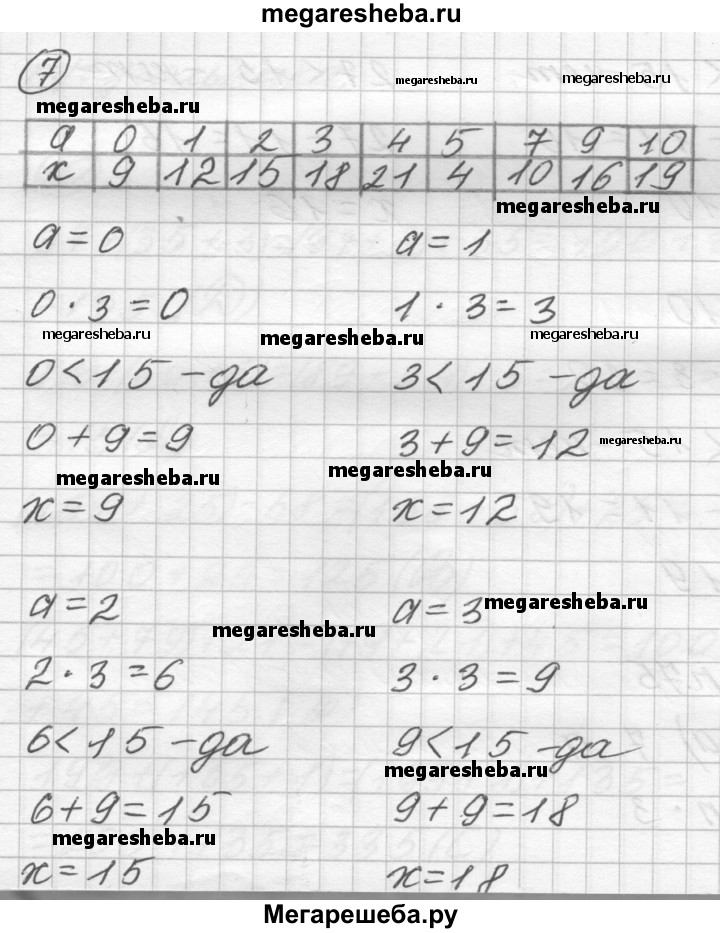 megaresheba.ru
7
megaresheba.ru megaresheba.ru
megaresheba.ru
a 0 1 2 3 4 5 7 9 10
x 9 12 15 18 21 4 10 16 19
megaresheba.ru
a = 0 a = 1
0 · 3 = 0 1 · 3 = 3
megaresheba.ru megaresheba.ru megaresheba.ru
0 < 15 - да 3 < 15 - да
0 + 9 = 9 3 + 9 = 12 megaresheba.ru
megaresheba.ru megaresheba.ru
x = 9 x = 12
a = 2 a = 3 megaresheba.ru
megaresheba.ru
2 · 3 = 6 3 · 3 = 9
6 < 15 - да 9 < 15 - да
megaresheba.ru
6 + 9 = 15 9 + 9 = 18
megaresheba.ru
x = 15 x = 18
Мегарешеба.ру